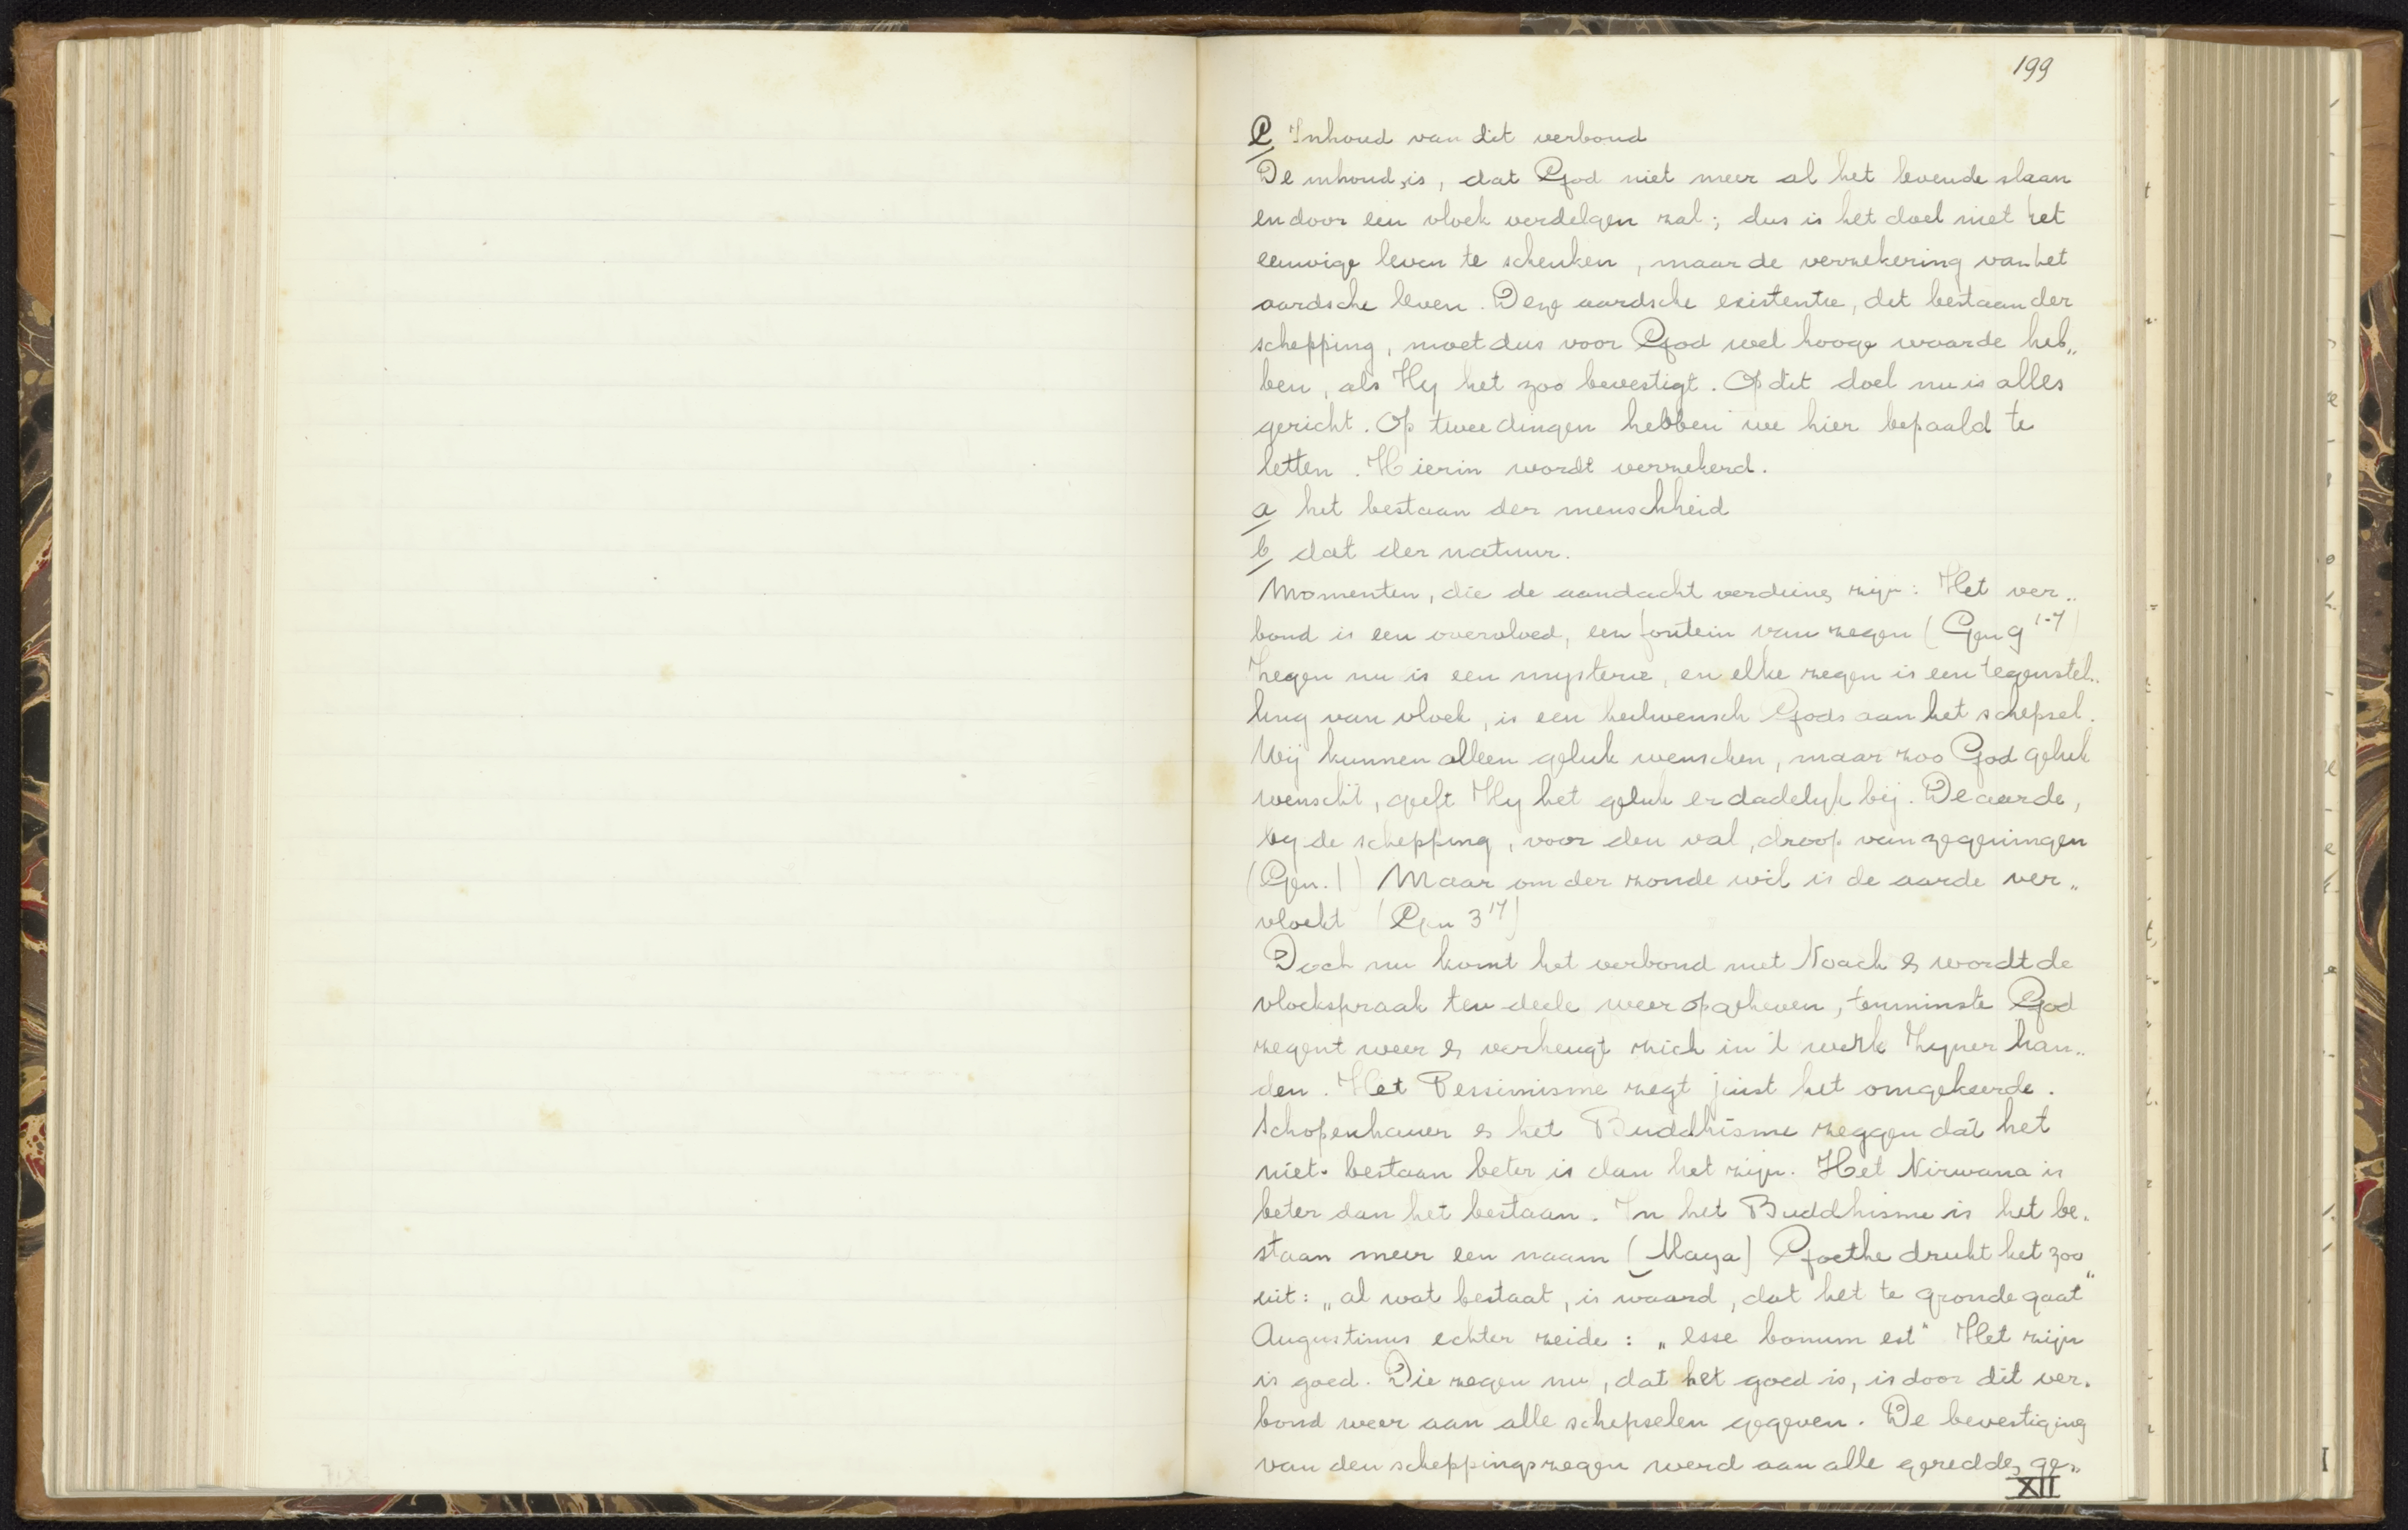 199
C Inhoud van dit verbond
De inhoud is, dat God niet meer al het levende slaan
en door een vloek verdelgen zal; dus is het doel niet het
eeuwige leven te schenken, maar de verzekering van het
aardsche leven. Deze aardsche existentie, dit bestaan der
schepping, moet dus voor God wel hooge waarde heb„
ben, als Hy het zoo bevestigt. Op dit doel nu is alles
gericht. Op twee dingen hebben we hier bepaald te
letten. Hierin wordt verzekerd.
a het bestaan der menschheid
b dat der natuur.
Momenten, die de aandacht verdienen zijn: Het ver„
bond is een overvloed, een fontein van zegen (Gen 9 1-7)
Zegen nu is een mysterie, en elke zegen is een tegenstel„
ling van vloek, is een heilwensch Gods aan het schepsel.
Wij kunnen alleen geluk wenschen, maar zoo God geluk
wenscht, geeft Hy het geluk er dadelyk bij. De aarde,
by de schepping, voor den val, droop van zegeningen
(Gen. 1) Maar om der zonde wil is de aarde ver„
vloekt (Gen 3 17)
Doch nu komt het verbond met Noach & wordt de
vloekspraak ten deele weer opgeheven, tenminste God
zegent weer & verheugt zich in 't werk Zyner han„
den. Het Pessimisme zegt juist het omgekeerde.
Schopenhauer & het Buddhisme zeggen dat het
niet-bestaan beter is dan het zijn. Het Nirwana is
beter dan het bestaan. In het Buddhisme is het be„
staan meer een naam (Maya) Goethe drukt het zoo
uit: „al wat bestaat, is waard, dat het te gronde gaat"
Augustinus echter zeide: „esse bonum est" Het zijn
is goed. Die zegen nu, dat het goed is, is door dit ver„
bond weer aan alle schepselen gegeven. De bevestiging
van den scheppingszegen werd aan alle geredden ge„
XII